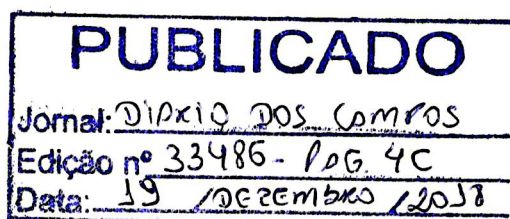 PUBLICADO
Jornal: DIÁRIO DOS CAMPOS
Edição nº 33486 - PÁG. 4C
Data: 19 / DEZEMBRO / 2018